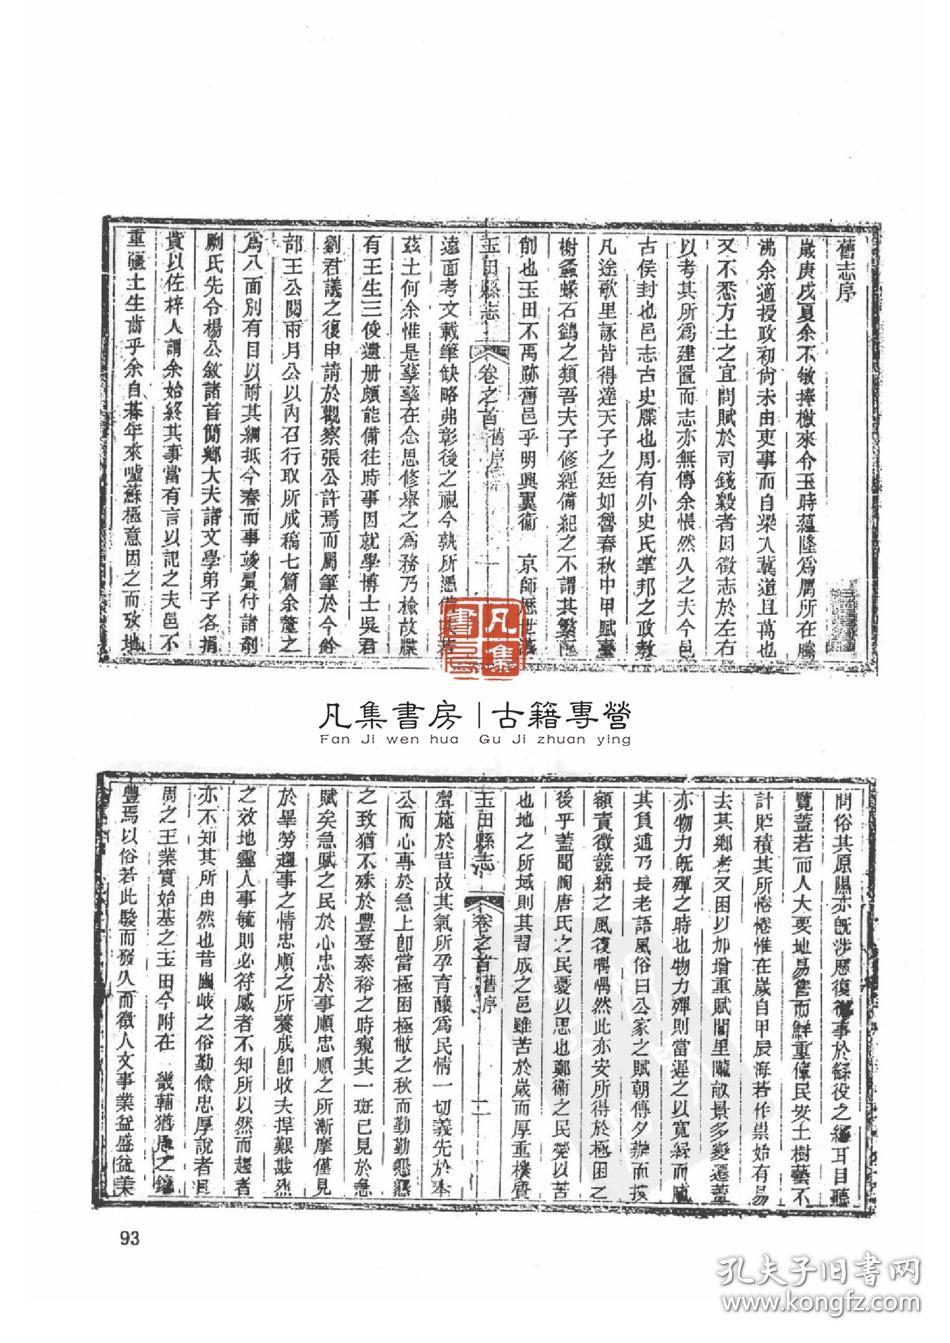 舊志序
歲庚戌夏余不敏捧檄來令玉時蘊隆為厲所在騰
沸余適授政初尚未由吏事而自梁入冀道且萬也
又不悉方土之宜問賦於司錢穀者因徵志於左右
以考其所為建置而志亦無傳余悵然久之夫今邑
古侯封也邑志古史牒也周有外史氏掌邦之政教
凡途歌里詠皆得達天子之廷如魯春秋中甲賦臺
榭螽蝝石鷁之類吾夫子修經備紀之不謂其繁
創也玉田不禹跡舊邑乎明興翼衛 京師歷世
玉田縣志 卷之首 舊序 一
遠面考文載筆缺略弗彰後之視今孰所憑
茲土何余惟是孳孳在念思修舉之為務乃檢故牒
有王生三俊遺册頗能備往時事因就學博士吳君
劉君議之復申請於觀察張公許焉而屬筆於今銓
部王公閱兩月公以內召行取所成稿七篇余釐之
為八面別有目以附其綱抵今春而事竣爰付諸剞
劂氏先令楊公敘諸首簡鄉大夫諸文學弟子各捐
貲以佐梓人謂余始終其事當有言以記之夫邑不
重疆土生齒乎余自碁年來噓蘇極意因之而攷地
凡集書房
凡集書房 | 古籍專營
Fan Ji wen hua Gu Ji zhuan ying
問俗其原隰亦旣涉歷復從事於錄役之經耳目聽
覽蓋若而人大要地易窄而鮮重億民安土樹藝不
計贮積其所惓惓惟在歲自甲辰海若作祟始有易
去其鄉者又困以加增重賦閭里隴畝景多變遷蓋
亦物力旣殫之時也物力殫則當遲之以寬紓而
其負逋乃長老語風俗曰公家之賦朝傳夕辦而按
額責徵競納之風復喁喁然此亦安所得於極困之
後乎蓋聞陶唐氏之民憂以思也鄭衛之民勞以苦
也地之所域則其習成之邑雖苦於歲而厚重樸
玉田縣志 卷之首 舊序 二
聲施於昔故其氣所孕育釀為民情一切義先於本
公而心專於急上卽當極困極敝之秋而勤勤懇懇
之致猶不殊於豐登泰裕之時窺其一斑已見於急
賦矣急賦之民於心忠於事順忠順之所漸摩僅見
於畢勞趨事之情忠順之所養成卽收夫捍艱敵烈
之效地靈人事毓則必符感者不知所以然而趨者
亦不知其所由然也昔豳岐之俗勤儉忠厚說者
周之王業實始基之玉田今附在 畿輔猶周之鎬
豐焉以俗若此駿而發久而徵人文事業益盛益美
93
孔夫子旧書网
www.kongfz.com